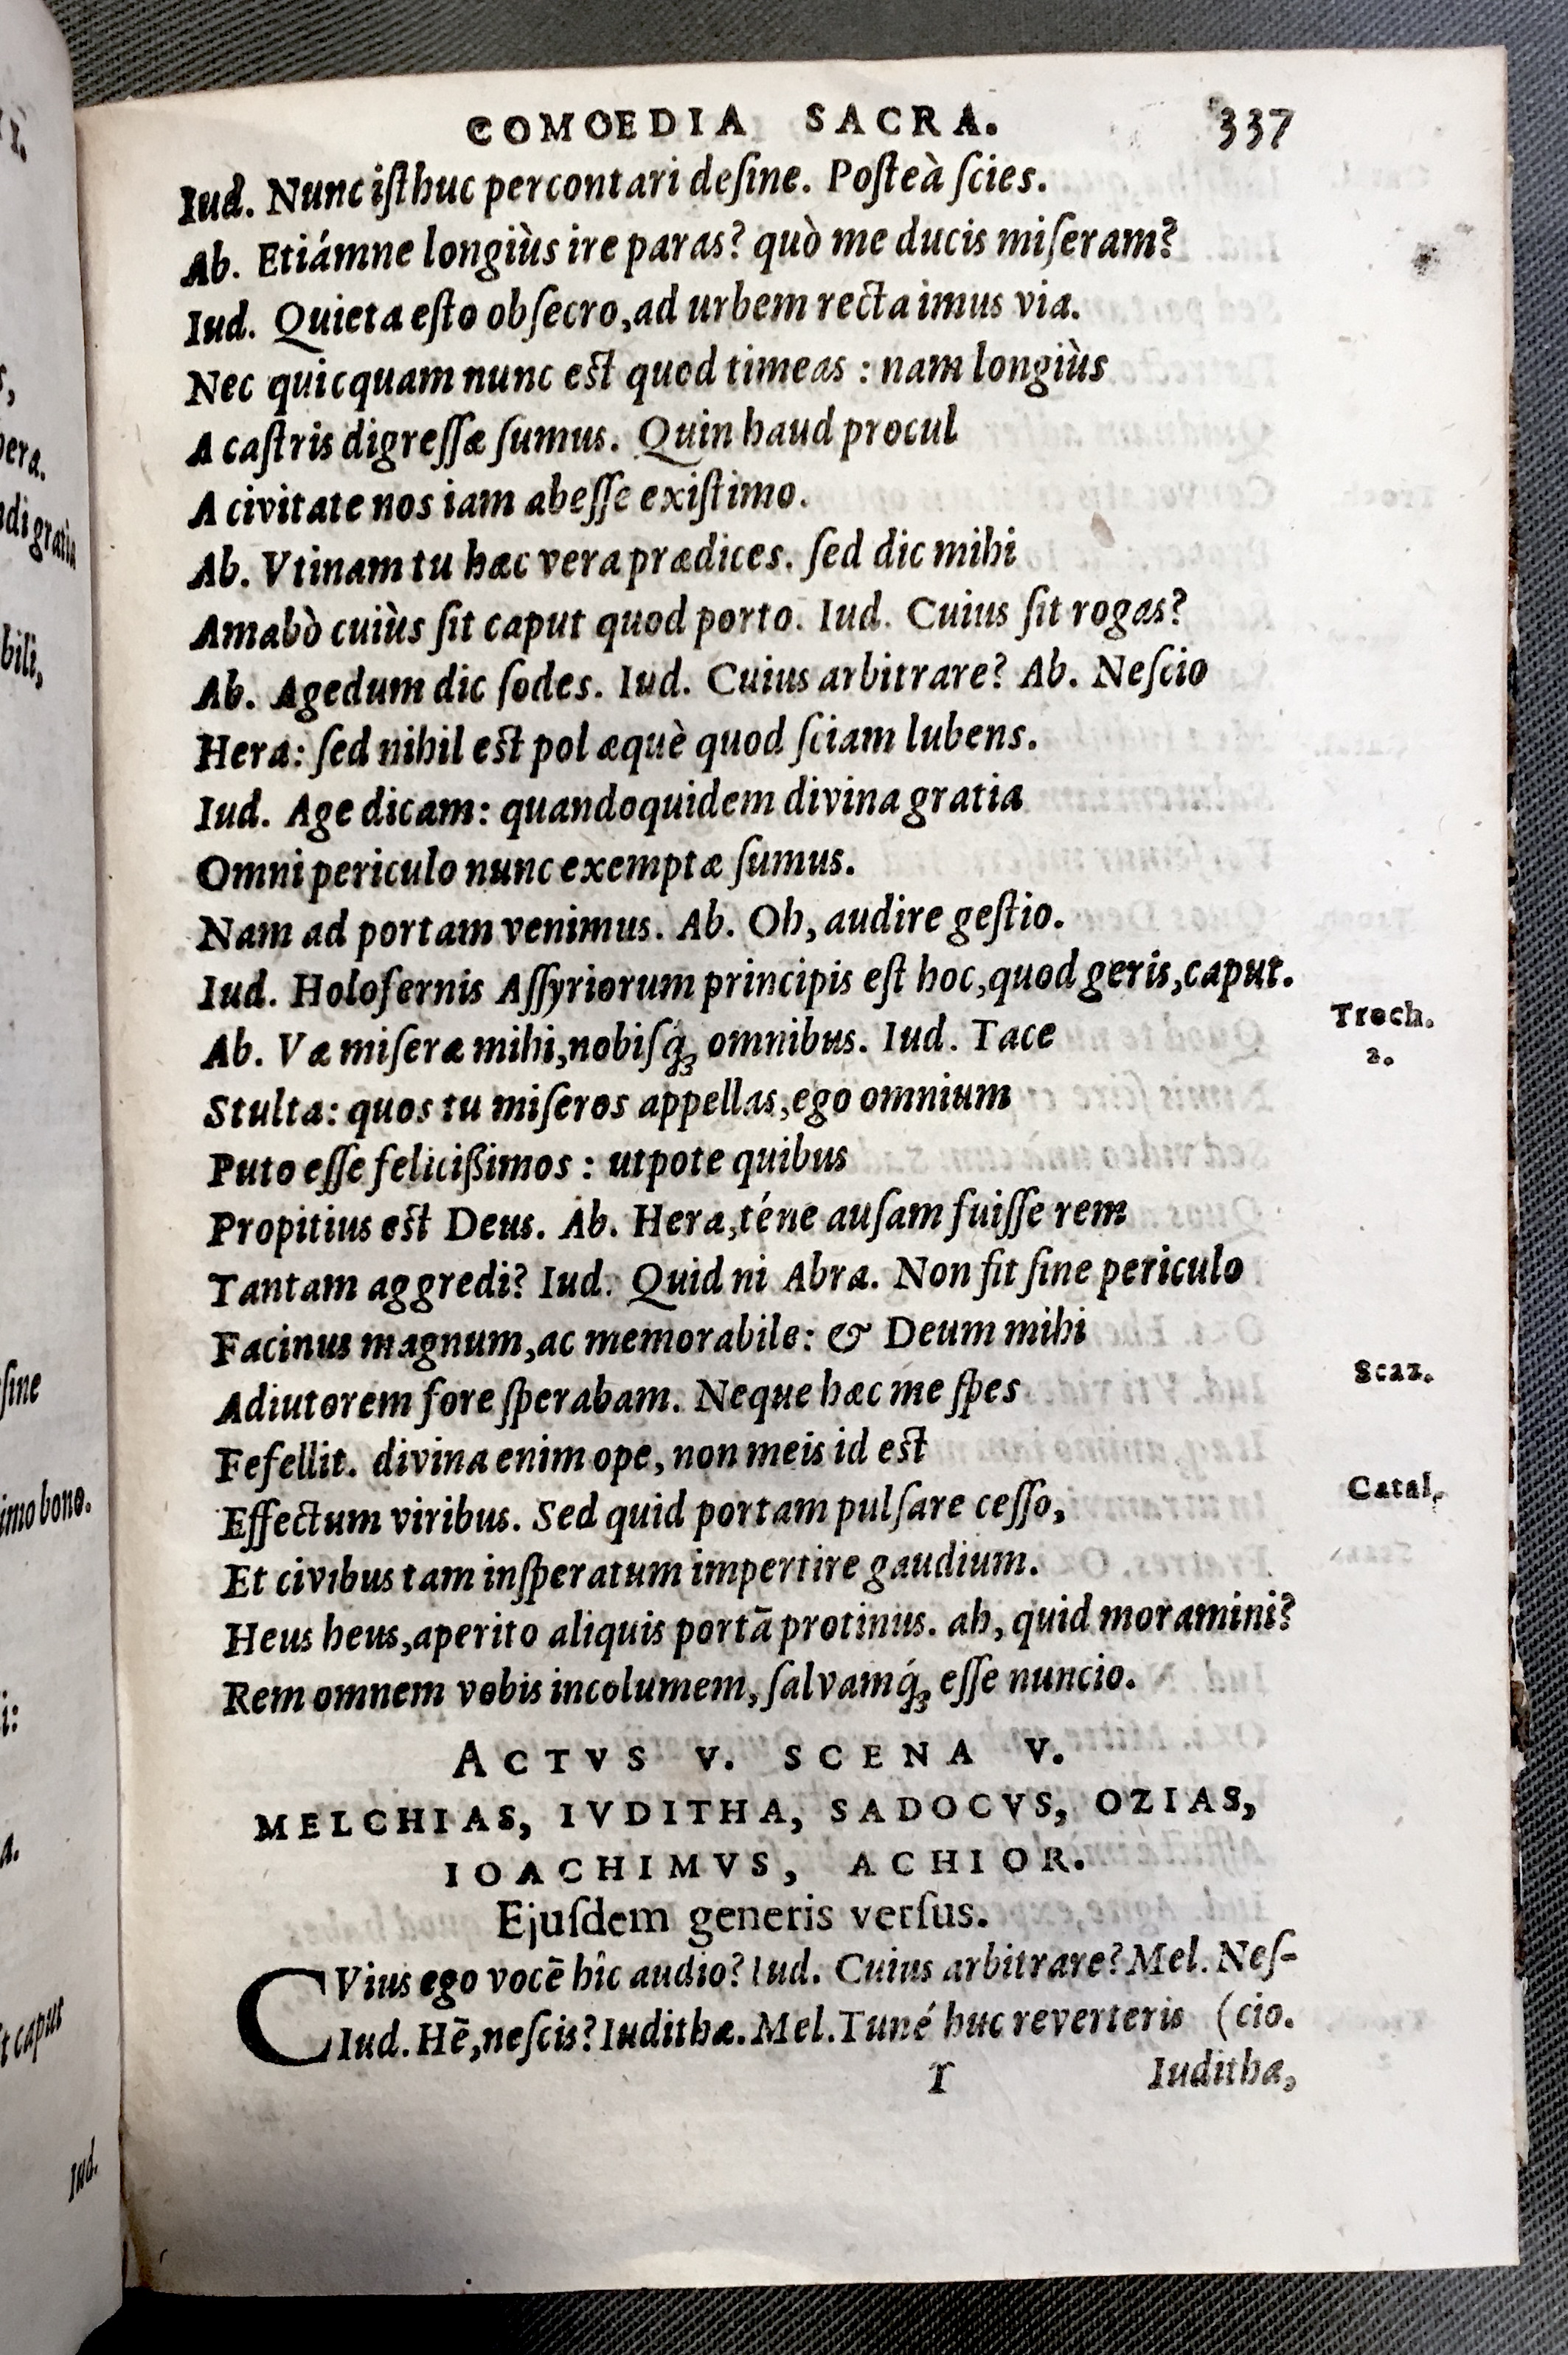 COMOEDIA SACRA. 337
Iud. Nunc iſthuc percontari deſine. Poſteà ſcies.
Ab. Etiámne longiùs ire paras? quò me ducis miſeram?
Iud. Quieta eſto obſecro, ad urbem recta imus via.
Nec quicquam nunc eſt quod timeas : nam longiùs
A caſtris digreſſæ ſumus. Quin haud procul
A civitate nos iam abeſſe exiſtimo.
Ab. Vtinam tu hæc vera prædices. ſed dic mihi
Amabò cuiùs ſit caput quod porto. Iud. Cuius ſit rogas?
Ab. Agedum dic ſodes. Iud. Cuius arbitrare? Ab. Neſcio
Hera: ſed nihil eſt pol æquè quod ſciam lubens.
Iud. Age dicam: quandoquidem divina gratia
Omni periculo nunc exemptæ ſumus.
Nam ad portam venimus. Ab. Oh, audire geſtio.
Iud. Holofernis Aſſyriorum principis eſt hoc, quod geris, caput.
Troch.
2.
Ab. Væ miſeræ mihi, nobiſq́ꝫ omnibus. Iud. Tace
Stulta: quos tu miſeros appellas, ego omnium
Puto eſſe feliciſsimos : utpote quibus
Propitius eſt Deus. Ab. Hera, téne auſam fuiſſe rem
Tantam aggredi? Iud. Quid ni Abra. Non fit ſine periculo
Facinus magnum, ac memorabile: & Deum mihi
Scaz.
Adiutorem fore ſperabam. Neque hæc me ſpes
Fefellit. divina enim ope, non meis id eſt
Catal.
Effectum viribus. Sed quid portam pulſare ceſſo,
Et civibus tam inſperatum impertire gaudium.
Heus heus, aperito aliquis portā protinus. ah, quid moramini?
Rem omnem vobis incolumem, ſalvamq́ꝫ eſſe nuncio.
ACTVS V. SCENA V.
MELCHIAS, IVDITHA, SADOCVS, OZIAS,
IOACHIMVS, ACHIOR.
Ejuſdem generis verſus.
CVius ego vocē hîc audio? Iud. Cuius arbitrare? Mel. Neſ-
Iud. Hē, neſcis? Iudithæ. Mel. Tuné huc reverteris (cio.
Y Iuditha,